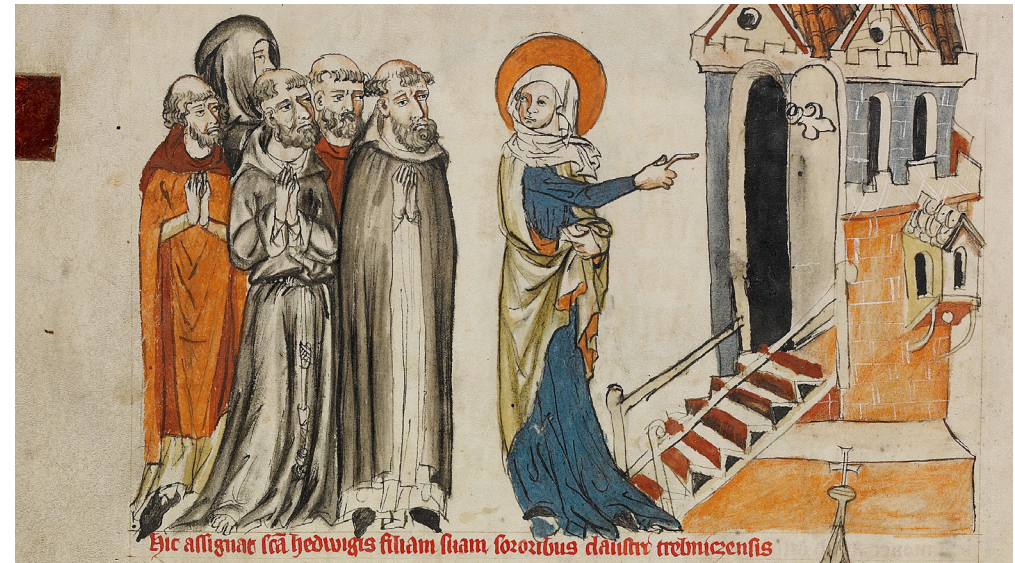 hic assignat scā hedwigis filiam suam sororibus claustri trebniczensis